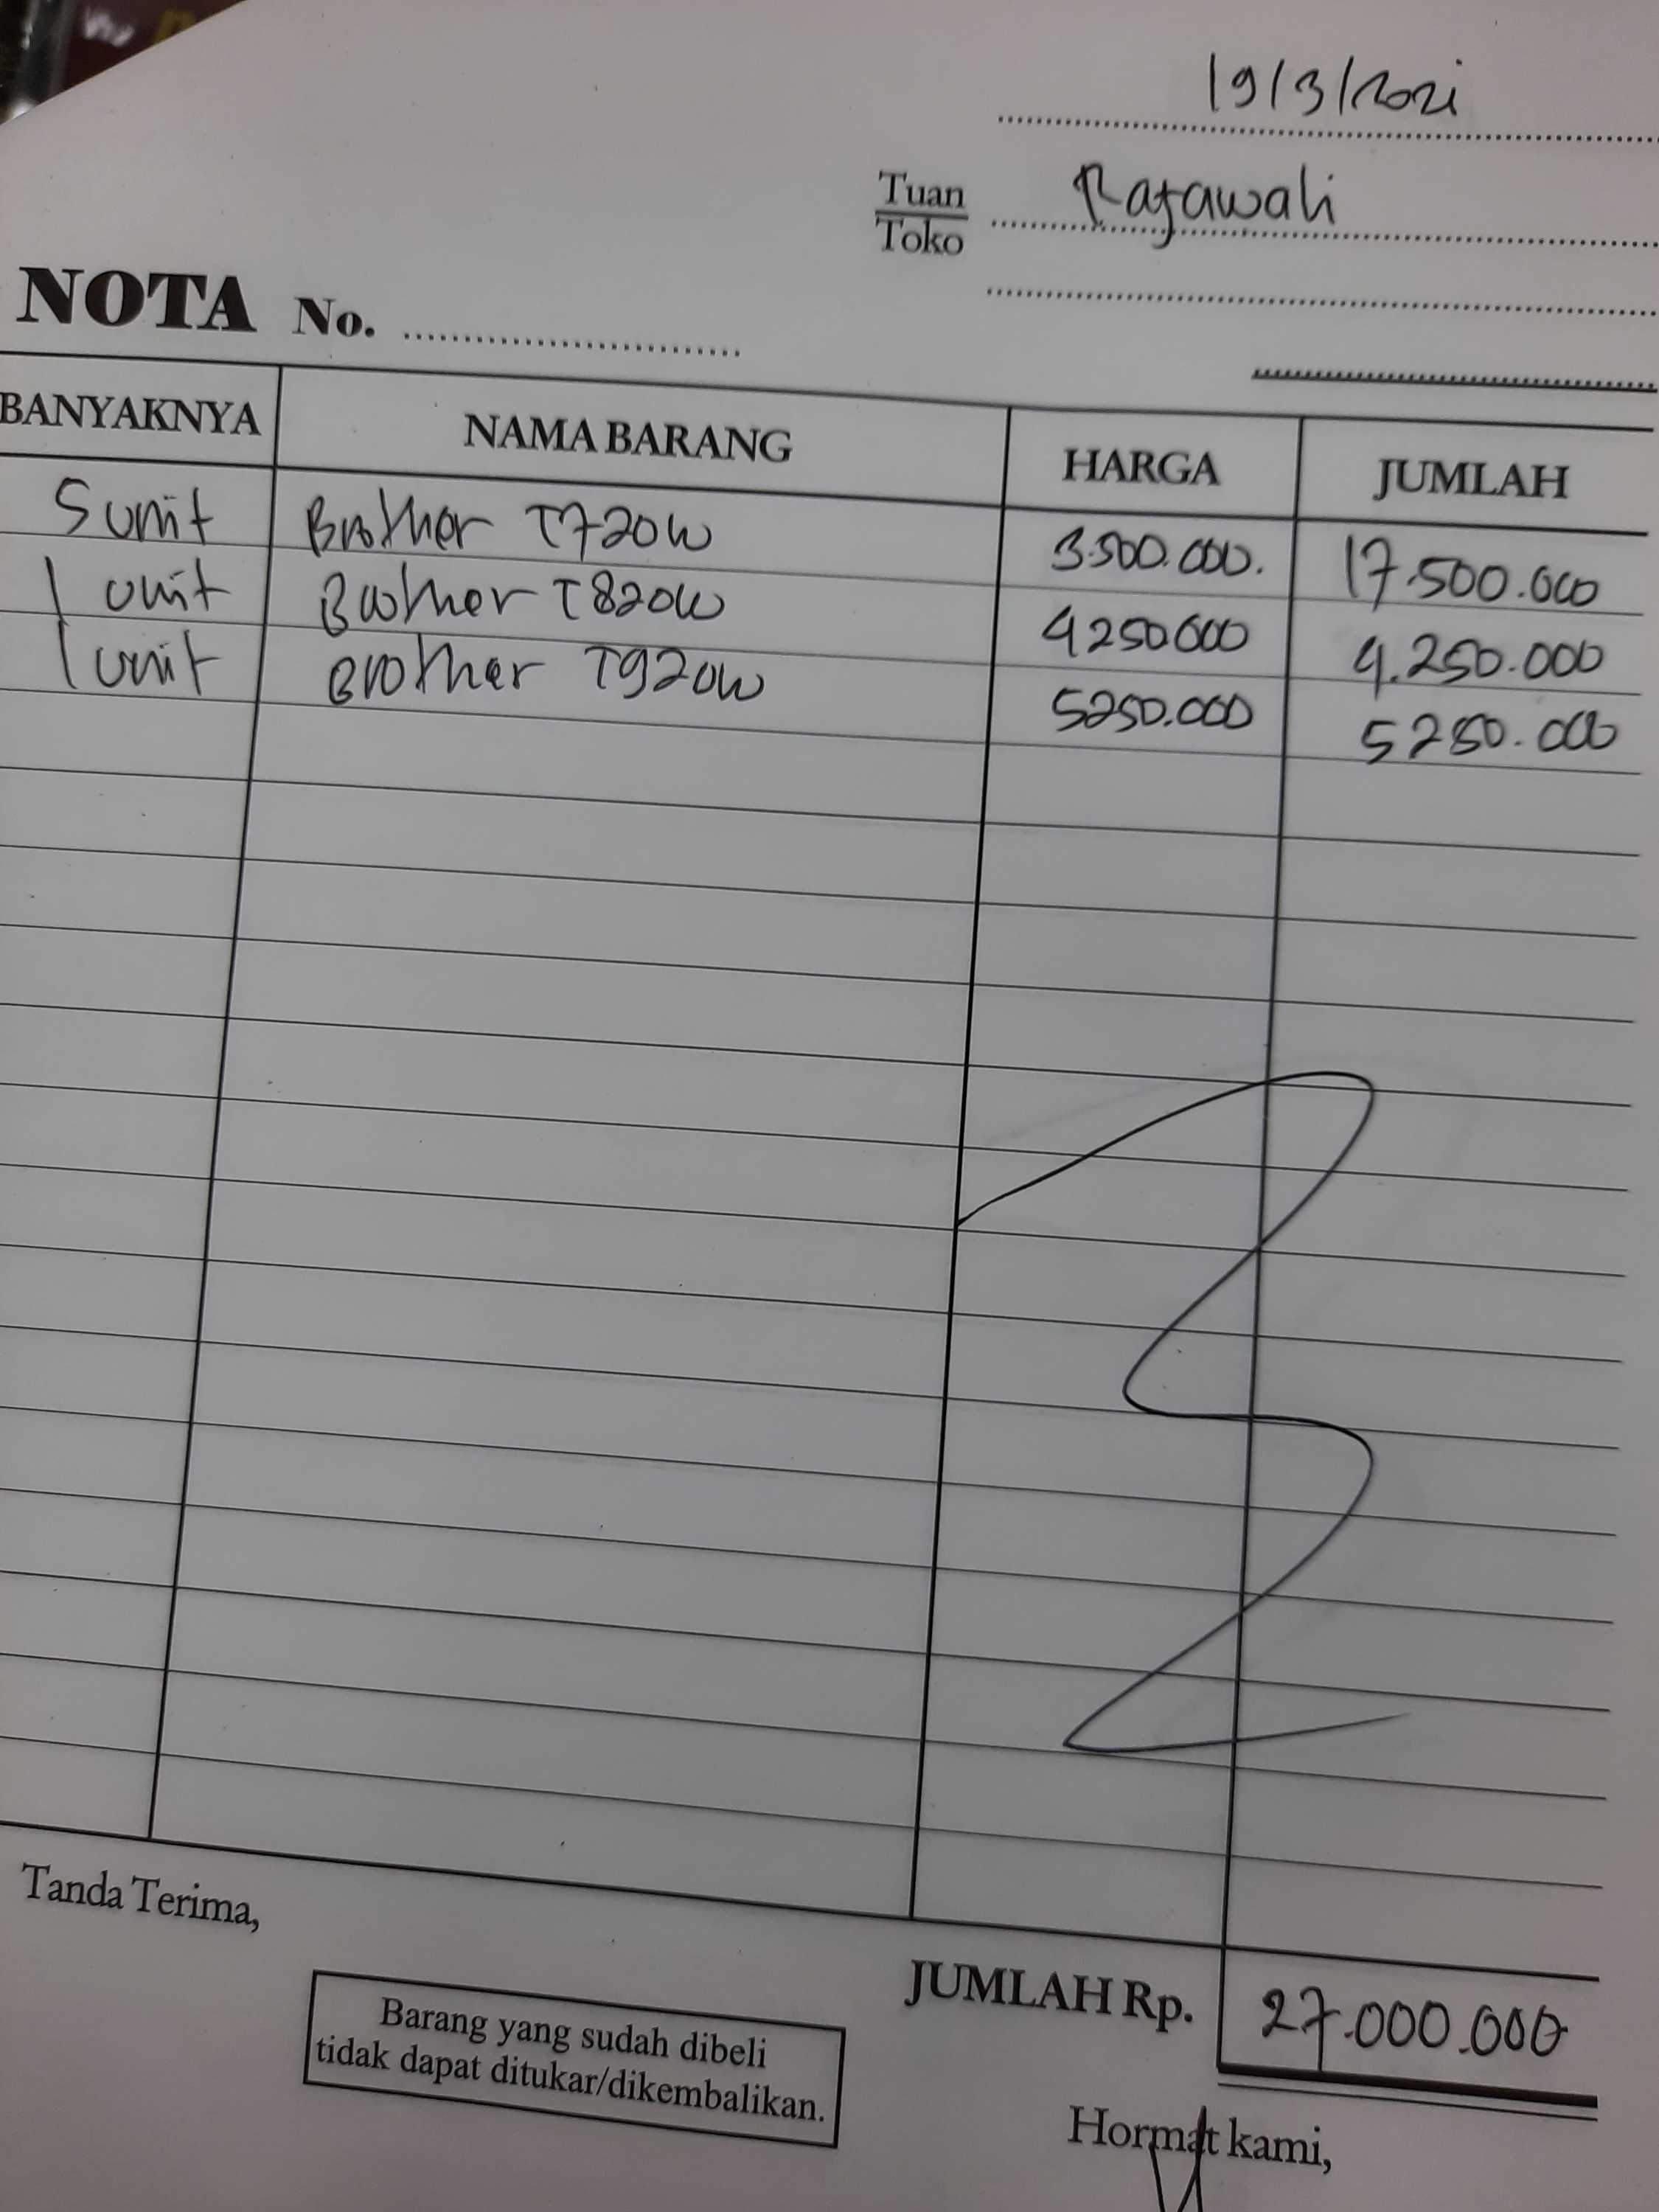 19/3/2021
Tuan
Toko
Rajawali
NOTA No.
BANYAKNYA NAMA BARANG HARGA JUMLAH
5 unit Brother T720W 3.500.000. 17.500.000
1 unit Brother T820W 4250000 4.250.000
1 unit Brother T920W 5250.000 5250.000
Tanda Terima,
JUMLAH Rp. 27.000.000
Barang yang sudah dibeli
tidak dapat ditukar/dikembalikan.
Hormat kami,